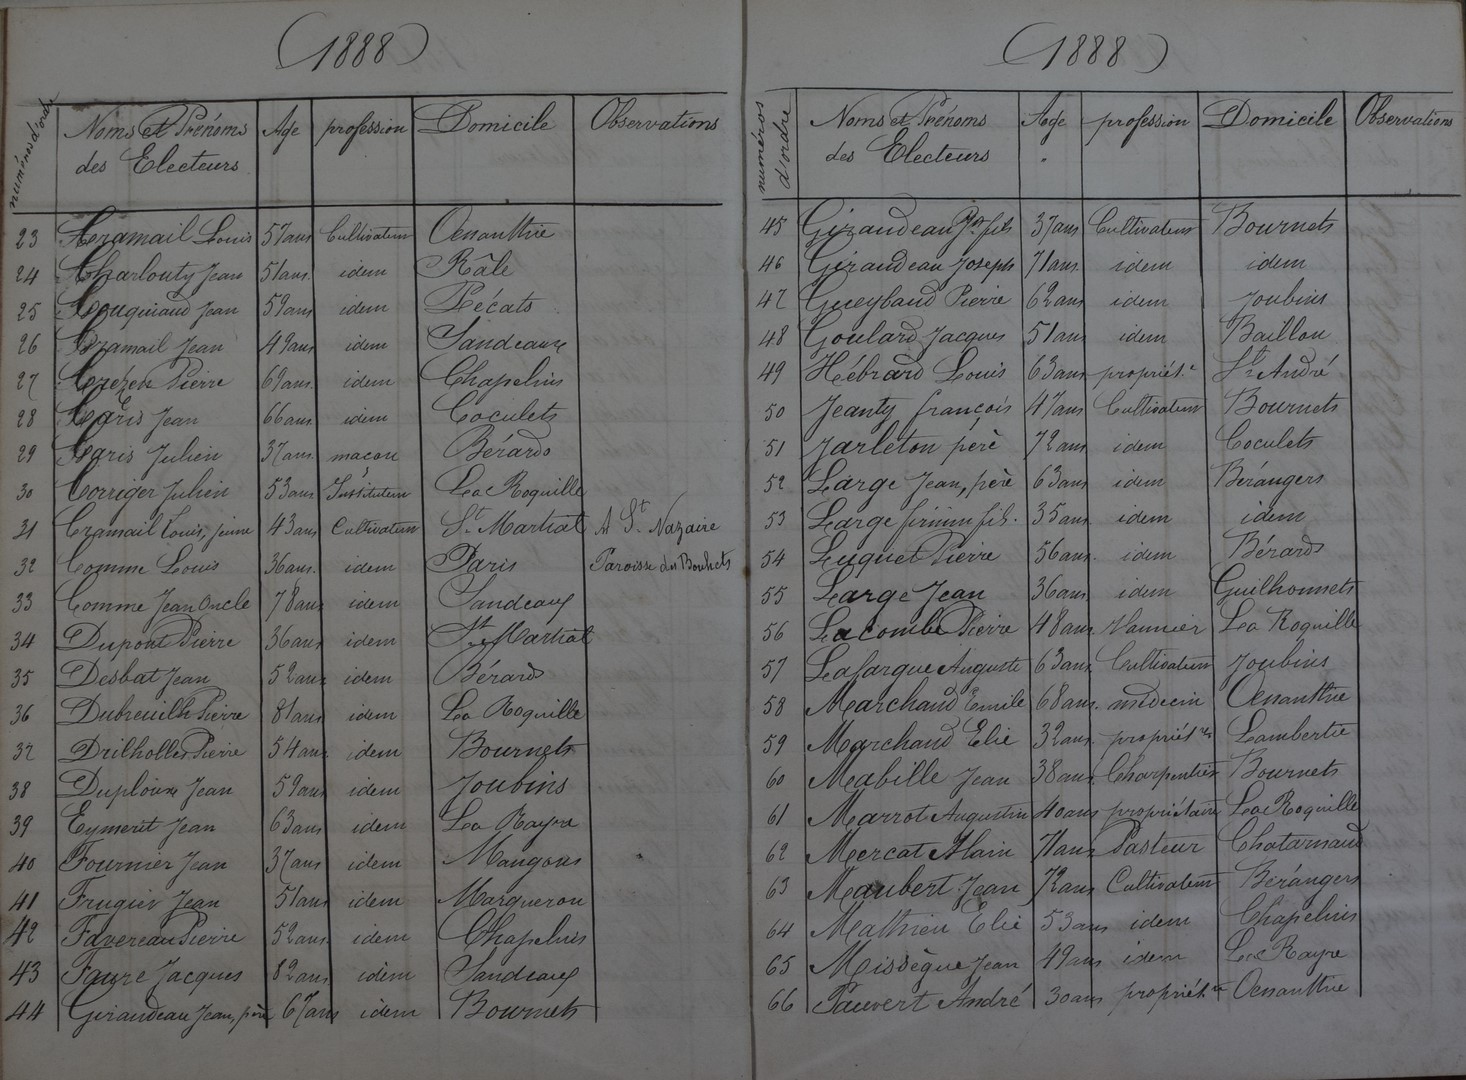 (1888)
numéros d'ordre | Noms et Prénoms des Electeurs | Age | profession | Domicile | Observations
23 Cramail Louis 57 ans Cultivateur Oenanthie
24 Charlouty Jean 51 ans idem Râle
25 Jean 59 ans idem Pécats
26 Cramail Jean 49 ans idem Sandeaux
27 Pierre 69 ans idem Chapelins
28 Caris Jean 66 ans idem Coculets
29 Caris Julien 37 ans maçon Bérards
30 Corriger Julien 53 ans Instituteur La Roquille
31 Cramail Louis, jeune 43 ans Cultivateur St Martial A St Nazaire
32 Comme Louis 36 ans idem Paris Paroisse des Bouhets
33 Comme Jean Oncle 78 ans idem Sandeaux
34 Dupont Pierre 36 ans idem St Martial
35 Desbat Jean 52 ans idem Bérards
36 Dubreuilh Pierre 81 ans idem La Roquille
37 Drilholles Pierre 54 ans idem Bournets
38 Jean 59 ans idem Joubins
39 Eymerit Jean 63 ans idem La Rayre
40 Fournier Jean 37 ans idem Maugons
41 Frugier Jean 51 ans idem Margueron
42 Favereau Pierre 52 ans idem Chapelins
43 Faure Jacques 82 ans idem Sandeaux
44 Giraudeau Jean, père 67 ans idem Bournets
(1888)
numéros d'ordre | Noms et Prénoms des Electeurs | Age | profession | Domicile | Observations
45 Giraudeau Jn fils 37 ans Cultivateur Bournets
46 Giraudeau Joseph 71 ans idem idem
47 Gueylaud Pierre 62 ans idem Joubins
48 Goulard Jacques 51 ans idem Baillou
49 Hébrard Louis 63 ans propriét.e St André
50 Jeanty françois 47 ans Cultivateur Bournets
51 Jarleton père 72 ans idem Coculets
52 Large Jean, père 63 ans idem Bérangers
53 Large fils. 35 ans idem idem
54 Luquet Pierre 56 ans idem Bérards
55 Large Jean 36 ans idem Guilhonnets
56 Lacombe Pierre 48 ans Vannier La Roquille
57 Lafargue Auguste 63 ans Cultivateur Joubins
58 Marchand Emile 68 ans médecin Oenanthie
59 Marchand Elie 32 ans propriét.re Lambertie
60 Mabille Jean 38 ans Charpentier Bournets
61 Marrot Augustin 40 ans propriétaire La Roquille
62 Mercat Alain 71 ans Pasteur Chatarnaud
63 Maubert Jean 72 ans Cultivateur Bérangers
64 Mathieu Elie 53 ans idem Chapelins
65 Missègue Jean 49 ans idem La Rayre
66 Pauvert André 30 ans propriét.re Oenanthie